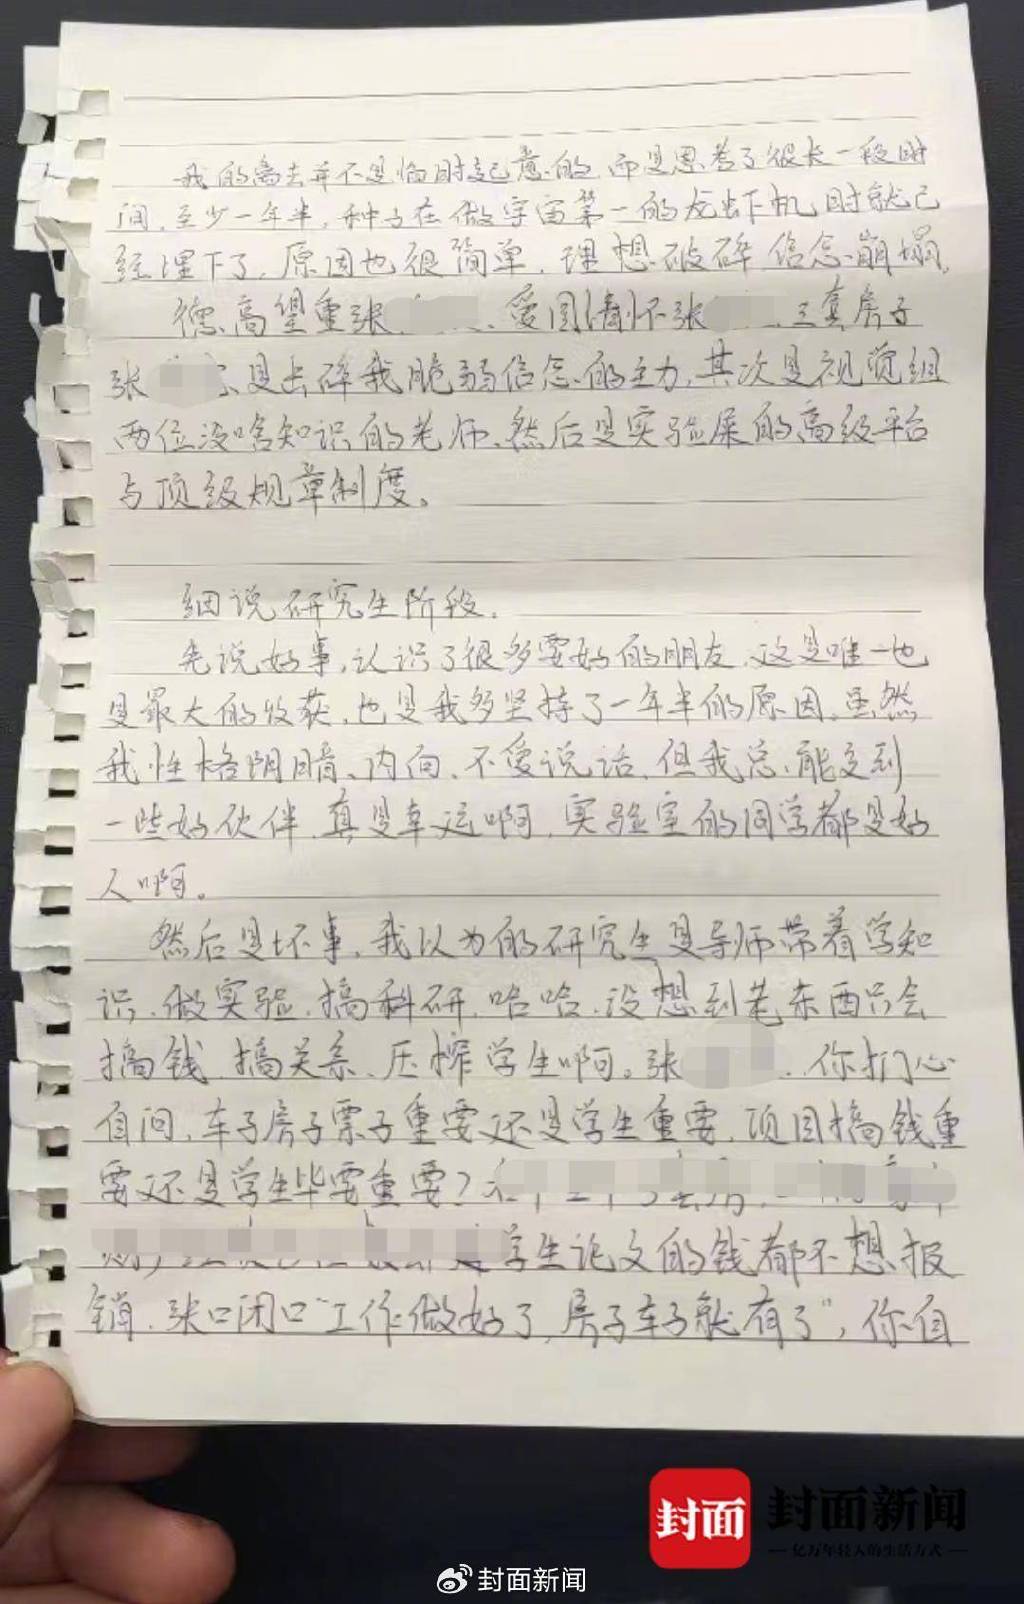 我的离去并不是临时起意的,而是思考了很长一段时
间,至少一年半,种子在做宇宙第一的龙虾机时就已
经埋下了,原因也很简单,理想破碎,信念崩塌,
德高望重张、爱国情怀张、三套房子
张是击碎我脆弱信念的主力,其次是视觉组
两位没啥知识的老师、然后是实验屎的高级平台
与顶级规章制度。
细说研究生阶段.
先说好事,认识了很多要好的朋友,这是唯一也
是最大的收获,也是我多坚持了一年半的原因。虽然
我性格阴暗、内向、不爱说话,但我总能交到
一些好伙伴,真是幸运啊,实验室的同学都是好
人啊。
然后是坏事,我以为的研究生是导师带着学知
识、做实验、搞科研,哈哈,没想到老东西只会
搞钱、搞关系、压榨学生啊。张,你扪心
自问,车子房子票子重要还是学生重要,项目搞钱重
要还是学生毕要重要?
学生论文的钱都不想报
销,张口闭口“工作做好了,房子车子就有了”,你自
封面 封面新闻
亿万年轻人的生活方式
封面新闻